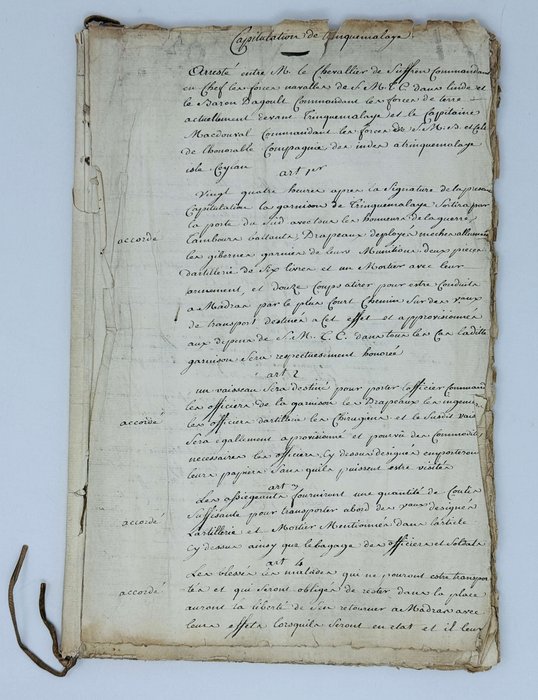 Capitulation de Trinquemalaye
Arresté entre M. le Chevallier de Suffren Commandant
en Chef les forces navalles de S. M. T. C. dans linde et
le Baron Dagoult Commandant les forces de terre
actuellement devant Trinquemalaye et le Capitaine
Macdouval Commandant les forces de S. M. B. et celle
de lhonorable Compagnie des indes a trinquemalaye
isle Ceylan
art 1er
Vingt quatre heures apres la Signature de la presente
Capitulation la garnison de Trinquemalaye Sortira par
la porte du Sud avec tous les honneurs de la guerre
accordé
tambours battants, Drapeaux deployés meches allumées
les gibernes garnies de leurs Munitions deux pieces
dartillerie de Six livres et un Mortier avec leur
armement, et douze Coups a tirer pour estre Conduits
a Madras par le plus Court Chemin Sur des vaux
de transport destinés a Cet effet et approvisionnés
aux depens de S. M. T. C. dans tous les Cas ladite
garnison Sera respectuesiment honorée
art 2
un vaisseau Sera destiné pour porter lofficier Command
les officiers de la garnison le Drapeaux les ingenie
accordé
les officiers dartillerie les Chirugiens et le Susdit vais
Sera également aprovisionné et pourvu des Commodités
necessaires les officiers Cy dessus designés emporteront
leurs papiers Sans quils puissent estre visités
art 3
Les assiegeants fourniront une quantité de
Suffisante pour transporter abord des vaux designés
accordé
Lartillerie et Mortier Mentionnés dans larticle
Cy dessus ainsy que le bagage des officiers et Soldats
art 4
Les blessés les malades qui ne pouront estre transpor
accordé
tés et qui Seront obligés de rester dans la place
auront la liberté de Sen retourner a Madras avec
leurs effets lorsquils Seront en etat et il leur